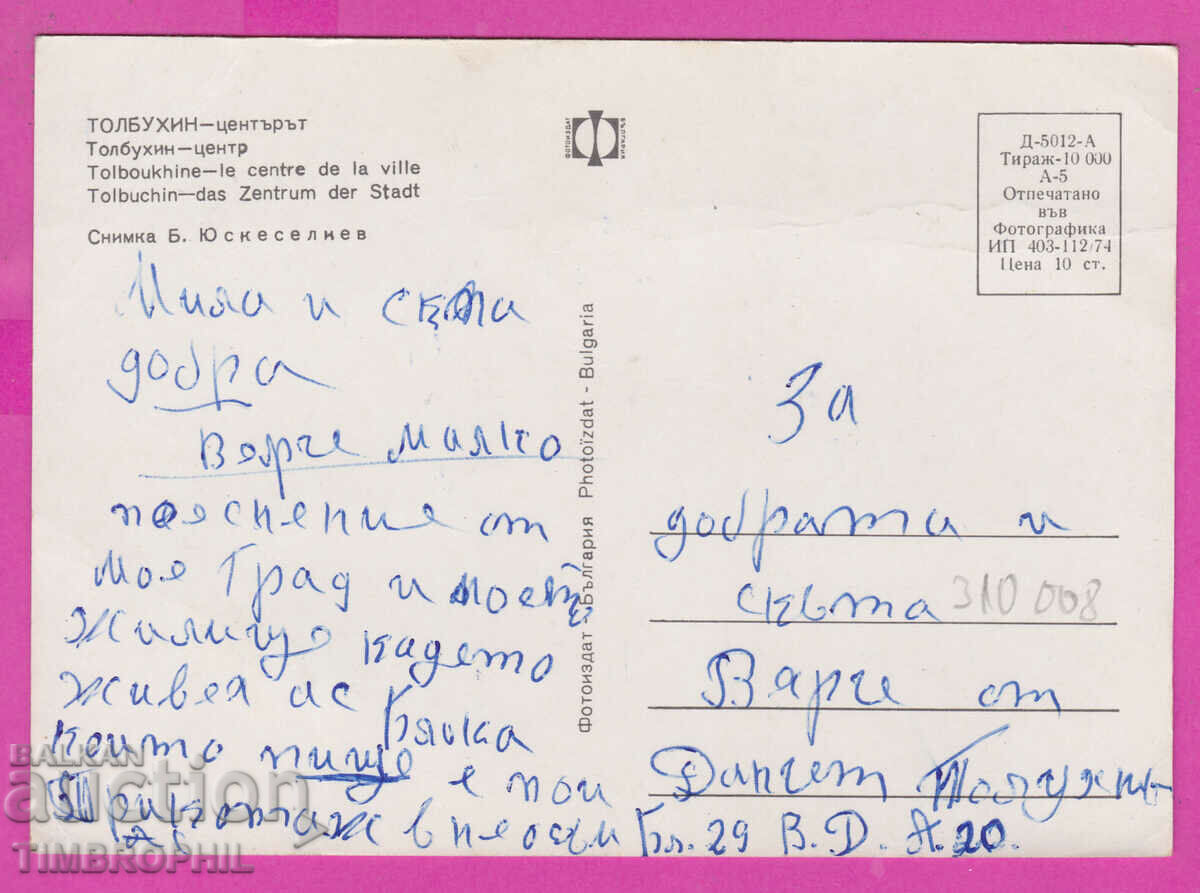 ТОЛБУХИН—центърът
Толбухин—центр
Tolboukhine—le centre de la ville
Tolbuchin—das Zentrum der Stadt
Снимка Б. Юскеселиев
ФОТОИЗДАТ
БЪЛГАРИЯ
Д-5012-А
Тираж-10 000
А-5
Отпечатано
във
Фотографика
ИП 403-112/74
Цена 10 ст.
Мила и скъпа
добра
Вярче малко
пояснения от
моя Град и моето
Жилище кадето
живея ас
Бялка
което пище е пои
Трикотаж в неосъм Бл. 29 В. Д. А. 20.
А-5
Фотоиздат - България Photoïzdat - Bulgaria
За
добрата и
скъпа
310 008
Вярче от
Данчет
BALKAN
auction
TIMBROPHIL